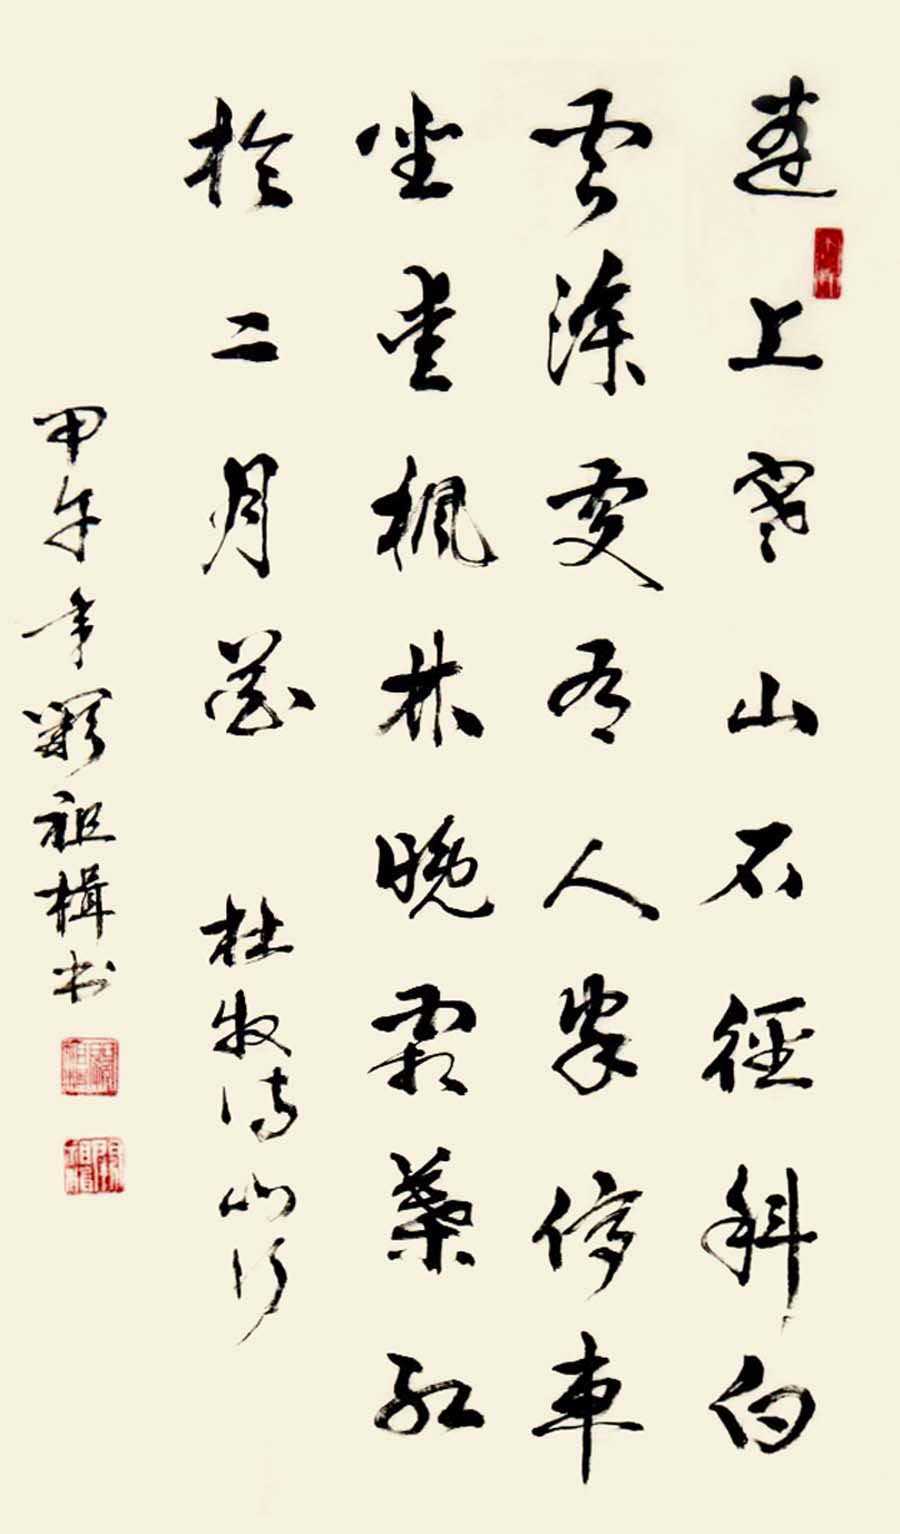 遠上寒山石徑斜白
雲深處有人家停車
坐愛楓林晚霜葉紅
於二月花 杜牧詩山行
甲午年 祖楫书